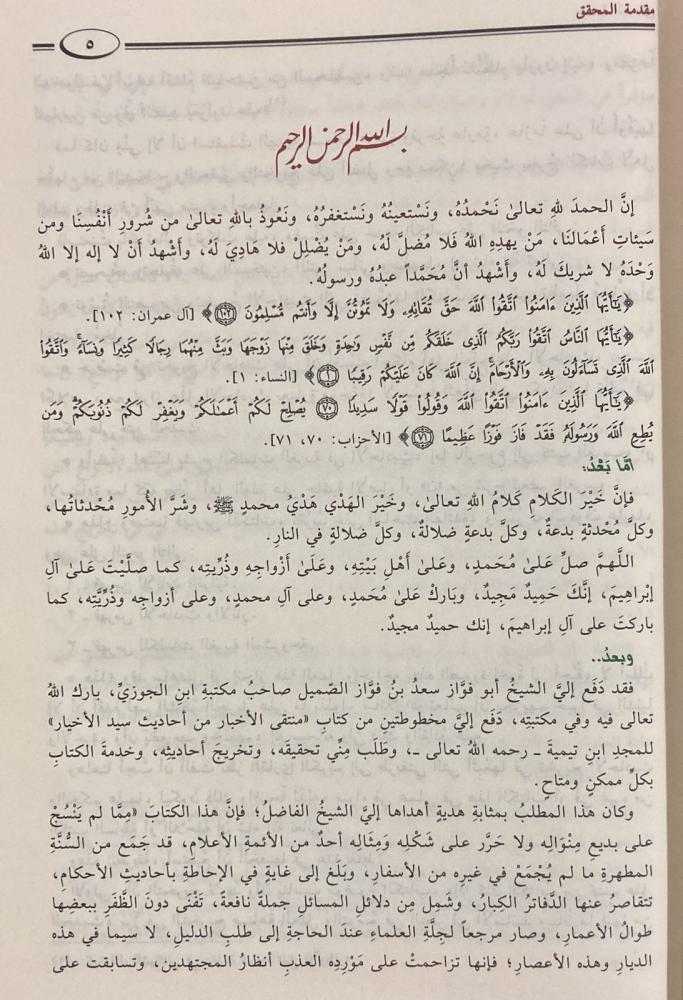 مقدمة المحقق
٥
بسم الله الرحمن الرحيم
إنَّ الحمدَ للهِ تعالىٰ نَحْمدُهُ، ونَستعينُهُ ونَستغفرُهُ، ونَعُوذُ باللهِ تعالىٰ من شُرورِ أنْفُسِنَا ومن
سَيئاتِ أعْمَالنَا، مَنْ يهدِهِ اللهُ فَلا مُضلَّ لَهُ، ومَنْ يُضْلِلْ فلا هَادِيَ لَهُ، وأَشْهدُ أنْ لا إله إلا اللهُ
وَحْدَهُ لا شريكَ لَهُ، وأشْهدُ أنَّ مُحَمَّداً عبدُهُ ورسولُهُ.
﴿يَٰٓأَيُّهَا ٱلَّذِينَ ءَامَنُوا۟ ٱتَّقُوا۟ ٱللَّهَ حَقَّ تُقَاتِهِۦ وَلَا تَمُوتُنَّ إِلَّا وَأَنتُم مُّسْلِمُونَ ١٠٢﴾ [آل عمران: ١٠٢].
﴿يَٰٓأَيُّهَا ٱلنَّاسُ ٱتَّقُوا۟ رَبَّكُمُ ٱلَّذِى خَلَقَكُم مِّن نَّفْسٍ وَٰحِدَةٍ وَخَلَقَ مِنْهَا زَوْجَهَا وَبَثَّ مِنْهُمَا رِجَالًا كَثِيرًا وَنِسَآءً ۚ وَٱتَّقُوا۟
ٱللَّهَ ٱلَّذِى تَسَآءَلُونَ بِهِۦ وَٱلْأَرْحَامَ ۚ إِنَّ ٱللَّهَ كَانَ عَلَيْكُمْ رَقِيبًا ١﴾ [النساء: ١].
﴿يَٰٓأَيُّهَا ٱلَّذِينَ ءَامَنُوا۟ ٱتَّقُوا۟ ٱللَّهَ وَقُولُوا۟ قَوْلًا سَدِيدًا ٧٠ يُصْلِحْ لَكُمْ أَعْمَٰلَكُمْ وَيَغْفِرْ لَكُمْ ذُنُوبَكُمْ ۗ وَمَن
يُطِعِ ٱللَّهَ وَرَسُولَهُۥ فَقَدْ فَازَ فَوْزًا عَظِيمًا ٧١﴾ [الأحزاب: ٧٠، ٧١].
أمَّا بَعْدُ:
فإنَّ خَيْرَ الكَلامِ كَلامُ اللهِ تعالىٰ، وخَيْرَ الهَدْيِ هَدْيُ محمدٍ ﷺ، وشَرَّ الأُمورِ مُحْدثاتُها،
وكلَّ مُحْدثةٍ بدعةٌ، وكلَّ بدعةٍ ضلالةٌ، وكلَّ ضلالةٍ في النارِ.
اللَّهمَّ صلِّ عَلىٰ مُحَمدٍ، وعَلىٰ أهْلِ بَيْتِهِ، وعَلَىٰ أزْواجِهِ وذُرِّيتِهِ، كما صلَّيْتَ عَلىٰ آلِ
إبْراهِيمَ، إنَّكَ حَمِيدٌ مَجِيدٌ، وبَارِكْ عَلىٰ مُحَمدٍ، وعلى آلِ محمدٍ، وعلى أزواجِه وذُرِّيَّتِه، كما
باركتَ على آلِ إبراهيمَ، إنك حميدٌ مجيدٌ.
وبعدُ..
فقد دَفَع إليَّ الشيخُ أبو فوَّاز سعدُ بنُ فوَّاز الصّميل صاحبُ مكتبةِ ابنِ الجوزيِّ، بارك اللهُ
تعالى فيه وفي مكتبتِه، دَفَع إليَّ مخطوطتينِ من كتابِ «منتقى الأخبار من أحاديث سيد الأخيار»
للمجدِ ابنِ تيميةَ ـ رحمه اللهُ تعالى ـ، وطَلَب مِنِّي تحقيقَه، وتخريجَ أحاديثِه، وخدمةَ الكتابِ
بكلِّ ممكنٍ ومتاحٍ.
وكان هذا المطلبُ بمثابةِ هديةٍ أهداها إليَّ الشيخُ الفاضلُ؛ فإنَّ هذا الكتابَ «مِمَّا لم يَنْسُجْ
على بديعِ مِنْوَالِه ولا حَرَّر على شَكْلِه ومِثَالِه أحدٌ من الأئمةِ الأعلامِ، قد جَمَع من السُّنَّةِ
المطهرةِ ما لم يُجْمَعْ في غيرِه من الأسفارِ، وبَلَغ إلى غايةٍ في الإحاطةِ بأحاديثِ الأحكامِ،
تتقاصرُ عنها الدَّفاترُ الكِبارُ، وشَمِل مِن دلائلِ المسائلِ جملةً نافعةً، تَفْنَى دونَ الظَّفَرِ ببعضِها
طوالُ الأعمارِ، وصار مرجعاً لجِلَّةِ العلماءِ عندَ الحاجةِ إلى طلبِ الدليلِ، لا سيما في هذه
الديارِ وهذه الأعصارِ؛ فإنها تزاحمتْ على مَوْرِدِه العذبِ أنظارُ المجتهدين، وتسابقت على